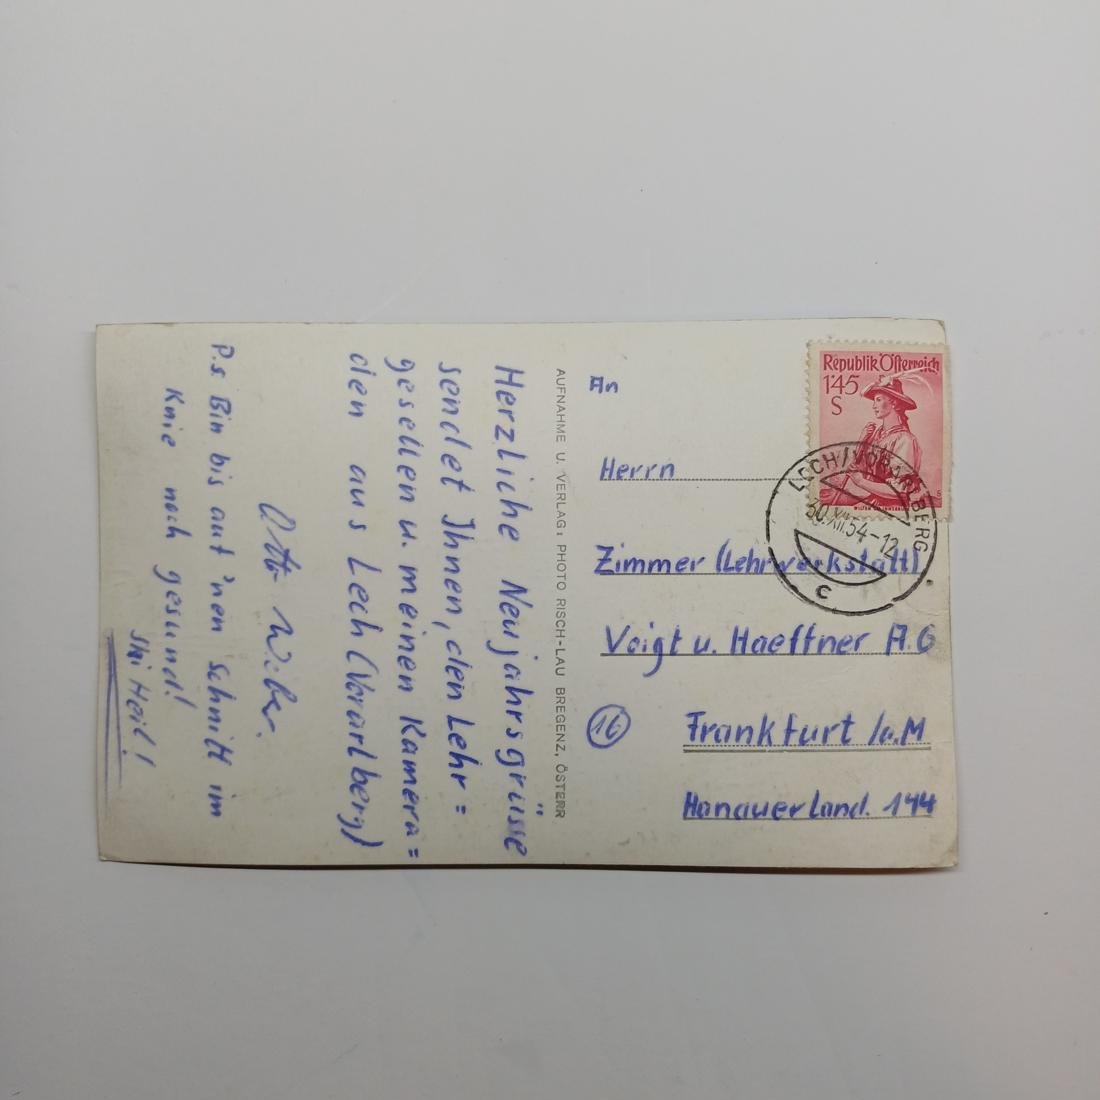 Herzliche Neujahrsgrüsse
sendet Ihnen, den Lehr=
gesellen u. meinen Kamera=
den aus Lech (Vorarlberg)
Otto
P.s. Bin bis auf 'nen Schnitt im
Knie noch gesund!
Ski Heil!
AUFNAHME U. VERLAG: PHOTO RISCH-LAU BREGENZ, ÖSTERR
An
Herrn
Zimmer (Lehrwerkstatt)
Voigt u. Haeffner A.G
16
Frankfurt /a.M
Hanauer Land. 144
Republik Österreich
1'45
S
LECH/VORARLBERG
30.XII.54-12
C